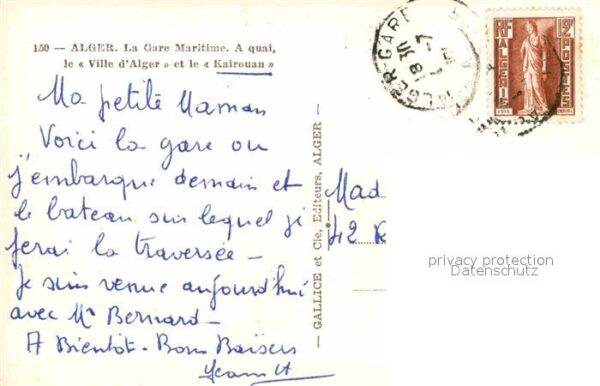 150 — ALGER. La Gare Maritime. A quai,
le « Ville d'Alger » et le « Kairouan »
Ma petite Maman
Voici la gare ou
j'embarque demain et
le bateau sur lequel je
ferai la traversée —
Je suis venue aujourd'hui
avec Mr Bernard —
A Bientôt - Bons Baisers
GALLICE et Cie, Editeurs, ALGER
ALGER GARE
18 30
RF
12F
ALGERIE
POSTES
Mad
42
privacy protection
Datenschutz